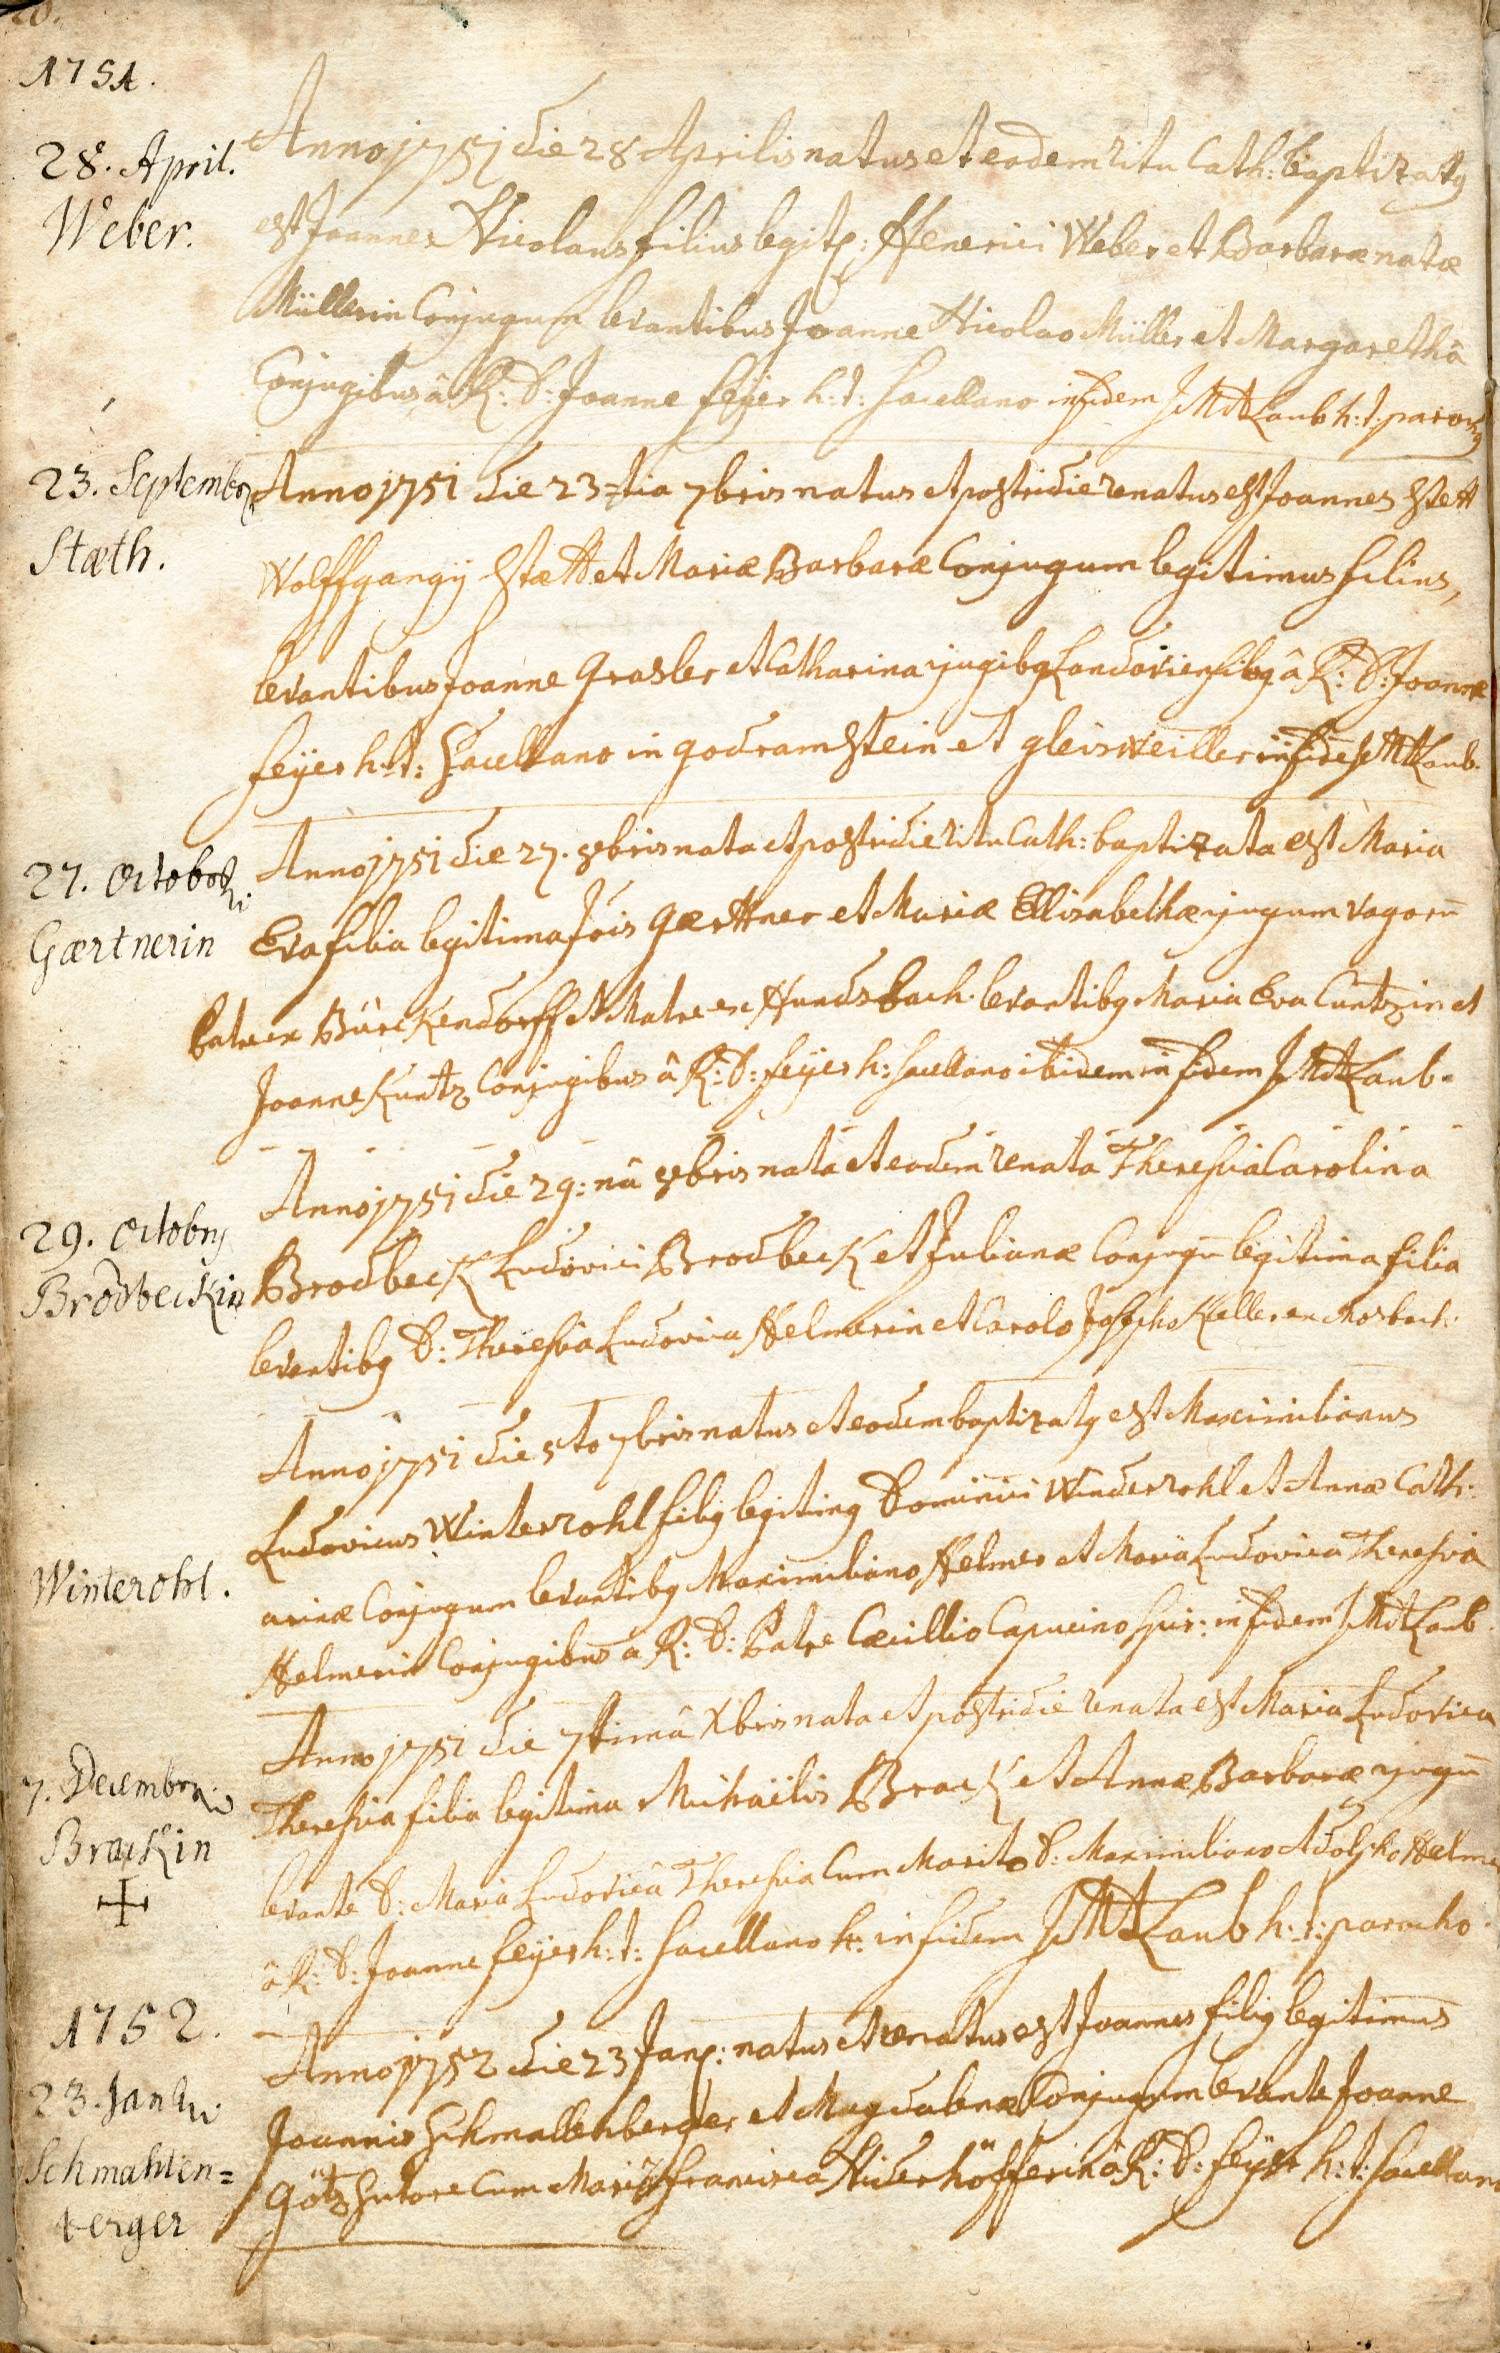 20.
1751.
28. April.
Weber.
Anno 1751 die 28 Aprilis natus et eodem ritu Cath: baptizatq
est Joannes Nicolaus filius legit: Henerici Weber et Barbaræ natæ
Müllerin Conjugum levantibus Joanne Nicolao Müller et Margarethâ
Conjugibus â R: D: Joanne feÿer h: t: sacellano in fidem JMALaub h: t: parochq
23. Septembr
Stæth.
Anno 1751 die 23=tia 7bris natus et postridie renatus est Joannes Stett
Wolffgangÿ Stætt et Mariæ Barbaræ Conjugum legitimus filius,
levantibus Joanne Grasler et Catharina jugibq Landaviensibq â R: D: Joanne
feÿer h: t: Sacellano in godramstein et gleisweiller in fidem JMALaub.
27. Octobr
Gærtnerin
Anno 1751 die 27. 8bris nata et postridie ritu Cath: baptizata est Maria
Eva filia legitima Jois Gærttner et Mariæ Ellisabethæ jugum vagorū
Patre ex Bürckendorff et Matre ex Hundsbach. levantibq Maria Eva Cuntzin et
Joanne Kuntz Conjugibus â R: D: feÿer h: sacellano ibidem in fidem JMALaub.
29. Octobr
Brodbeckin
Anno 1751 die 29: nâ 8bris nata et eodem renata Theresia Carolina
Brodbeck Ludovici Brodbeck et Julianæ Conjugū legitima filia
levantibq D: Theresia Ludovica Helmerin et Carolo Josepho Keller ex Mosbach.
Winterohl.
Anno 1751 die 5to 7bris natus et eodem baptizatq est Maximilianus
Ludovicus Winterrohl filiq legitimq Dominici Winderrohl et Annæ Cath:
arinæ Conjugum levantibq Maximiliano Helmer et Maria Ludovica Theresia
Helmerin Conjugibus a R: D: Patre Cæcillio Capucino in fidem JMALaub.
7. Decembr
Brackin
Anno 1751 die 7timâ Xbris nata et postridie renata est Maria Ludovica
Theresia filia legitima Michaëlis Brack et Annæ Barbaræ jugū
levante D: Maria Ludovicâ Theresia Cum Marito D: Maximiliano Adolpho Helmer
â R: D: Joanne feÿer h: t: Sacellano h: in fidem JMALaub h: t: parocho.
1752.
23. Jan
Schmahlen=
berger
Anno 1752 die 23 Jan: natus et renatus est Joannes filiq legitimus
Joannis Schmallenberger et Magdalenæ Conjugum levante Joanne
Götz sutore Cum Mariâ francisca Niderhöfferin â R: D: feÿer h: t: sacellano